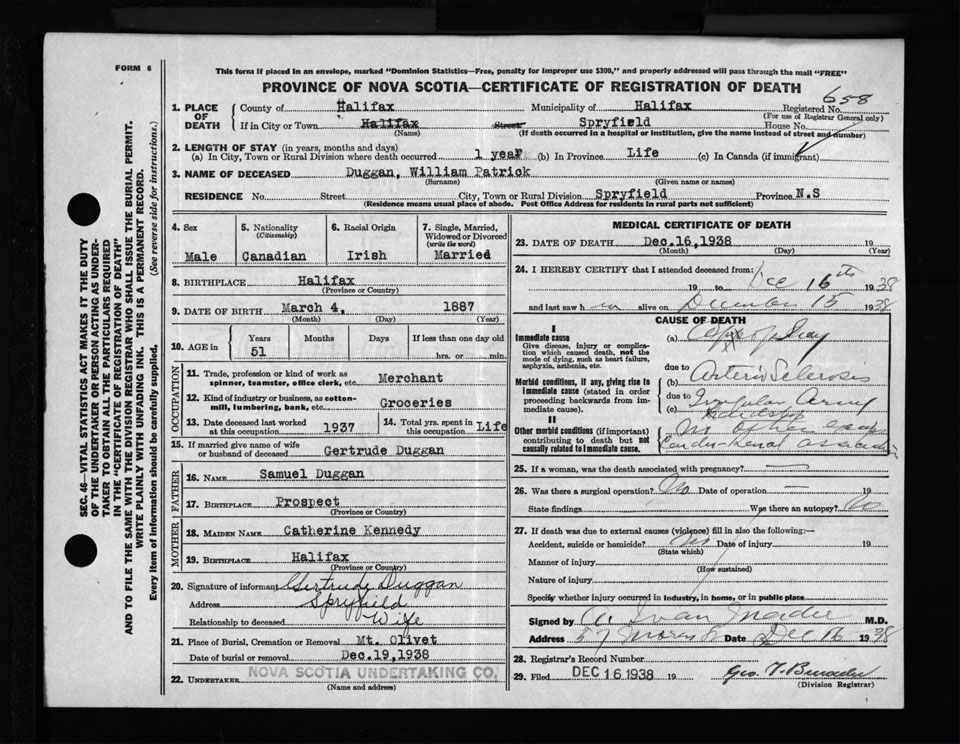 FORM 6
This form if placed in an envelope, marked "Dominion Statistics—Free, penalty for improper use $300," and properly addressed will pass through the mail "FREE"
PROVINCE OF NOVA SCOTIA—CERTIFICATE OF REGISTRATION OF DEATH
658
1. PLACE OF DEATH
County of Halifax Municipality of Halifax Registered No.
(For use of Registrar General only)
If in City or Town Halifax Street Spryfield House No.
(Name) (If death occurred in a hospital or institution, give the name instead of street and number)
2. LENGTH OF STAY (in years, months and days)
(a) In City, Town or Rural Division where death occurred 1 year (b) In Province Life (c) In Canada (if immigrant)
3. NAME OF DECEASED Duggan, William Patrick
(Surname) (Given name or names)
RESIDENCE No. Street City, Town or Rural Division Spryfield Province N.S
(Residence means usual place of abode. Post Office Address for residents in rural parts not sufficient)
4. Sex Male
5. Nationality (Citizenship) Canadian
6. Racial Origin Irish
7. Single, Married, Widowed or Divorced (write the word) Married
8. BIRTHPLACE Halifax
(Province or Country)
9. DATE OF BIRTH March 4, 1887
(Month) (Day) (Year)
10. AGE in Years Months Days If less than one day old
51 hrs. or min.
OCCUPATION
11. Trade, profession or kind of work as spinner, teamster, office clerk, etc. Merchant
12. Kind of industry or business, as cotton-mill, lumbering, bank, etc. Groceries
13. Date deceased last worked at this occupation 1937
14. Total yrs. spent in this occupation Life
15. If married give name of wife or husband of deceased Gertrude Duggan
FATHER
16. NAME Samuel Duggan
17. BIRTHPLACE Prospect
(Province or Country)
MOTHER
18. MAIDEN NAME Catherine Kennedy
19. BIRTHPLACE Halifax
(Province or Country)
20. Signature of informant Gertrude Duggan
Address Spryfield
Relationship to deceased Wife
21. Place of Burial, Cremation or Removal Mt. Olivet
Date of burial or removal Dec.19,1938
22. UNDERTAKER NOVA SCOTIA UNDERTAKING CO.
(Name and address)
MEDICAL CERTIFICATE OF DEATH
23. DATE OF DEATH Dec.16,1938 19
(Month) (Day) (Year)
24. I HEREBY CERTIFY that I attended deceased from:
19 to Dec 16th 1938
and last saw h alive on December 15 1938
CAUSE OF DEATH
I
Immediate cause
Give disease, injury or complication which caused death, not the mode of dying, such as heart failure, asphyxia, asthenia, etc.
(a) Apoplexy
due to
Morbid conditions, if any, giving rise to immediate cause (stated in order proceeding backwards from immediate cause).
(b) Arterio Sclerosis
due to
(c)
II
Other morbid conditions (if important) contributing to death but not causally related to immediate cause.
25. If a woman, was the death associated with pregnancy? —
26. Was there a surgical operation? No Date of operation — 19
State findings Was there an autopsy? No
27. If death was due to external causes (violence) fill in also the following:—
Accident, suicide or homicide? No Date of injury 19
(State which)
Manner of injury
(How sustained)
Nature of injury
Specify whether injury occurred in industry, in home, or in public place
Signed by A. Ivan Mader M.D.
Address 57 Morris St Date Dec 16 1938
28. Registrar's Record Number
29. Filed DEC 16 1938 19
(Division Registrar)
SEC. 46—VITAL STATISTICS ACT MAKES IT THE DUTY
OF THE UNDERTAKER OR PERSON ACTING AS UNDERTAKER
TO OBTAIN ALL THE PARTICULARS REQUIRED
IN THE "CERTIFICATE OF REGISTRATION OF DEATH"
AND TO FILE THE SAME WITH THE DIVISION REGISTRAR WHO SHALL ISSUE THE BURIAL PERMIT.
WRITE PLAINLY WITH UNFADING INK. THIS IS A PERMANENT RECORD.
Every item of information should be carefully supplied. (See reverse side for instructions.)